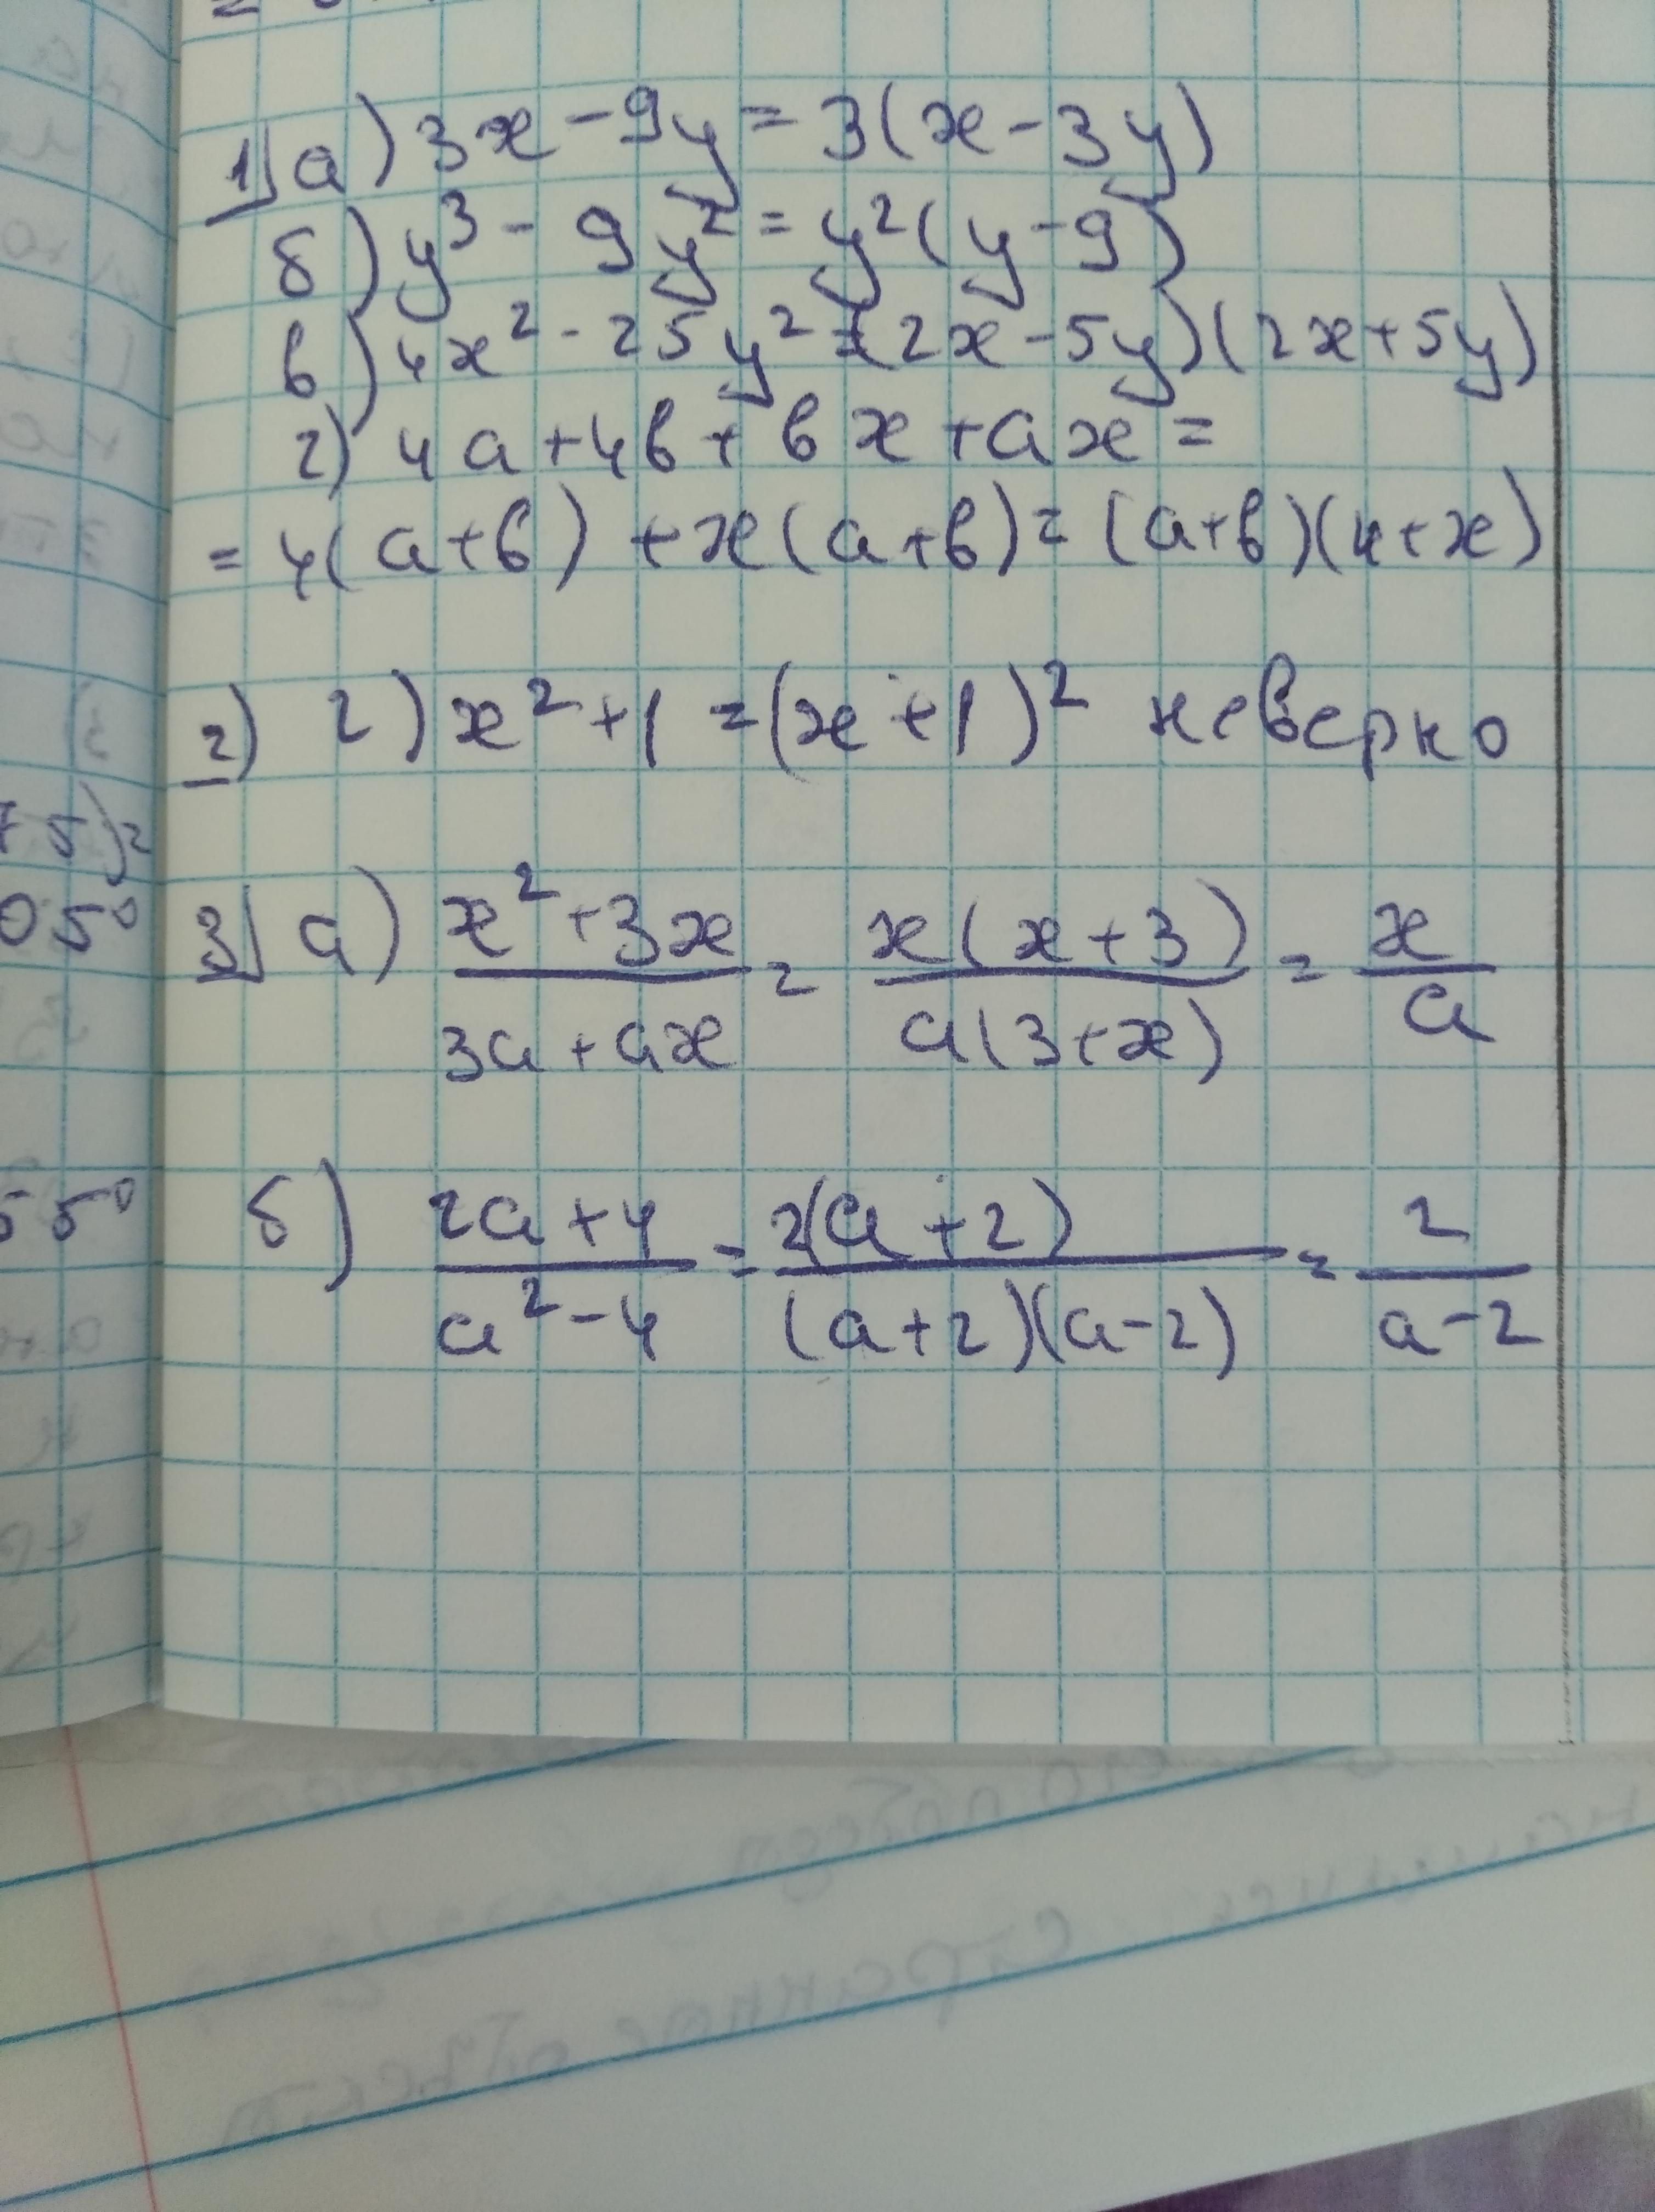 1) а) 3x - 9y = 3(x - 3y)
б) y³ - 9y² = y²(y - 9)
в) 4x² - 25y² = (2x - 5y)(2x + 5y)
г) 4a + 4b + bx + ax =
= 4(a + b) + x(a + b) = (a + b)(4 + x)
2) 2) x² + 1 = (x + 1)² неверно
3) а) \frac{x² + 3x}{3a + ax} = \frac{x(x + 3)}{a(3 + x)} = \frac{x}{a}
б) \frac{2a + 4}{a² - 4} = \frac{2(a + 2)}{(a + 2)(a - 2)} = \frac{2}{a - 2}